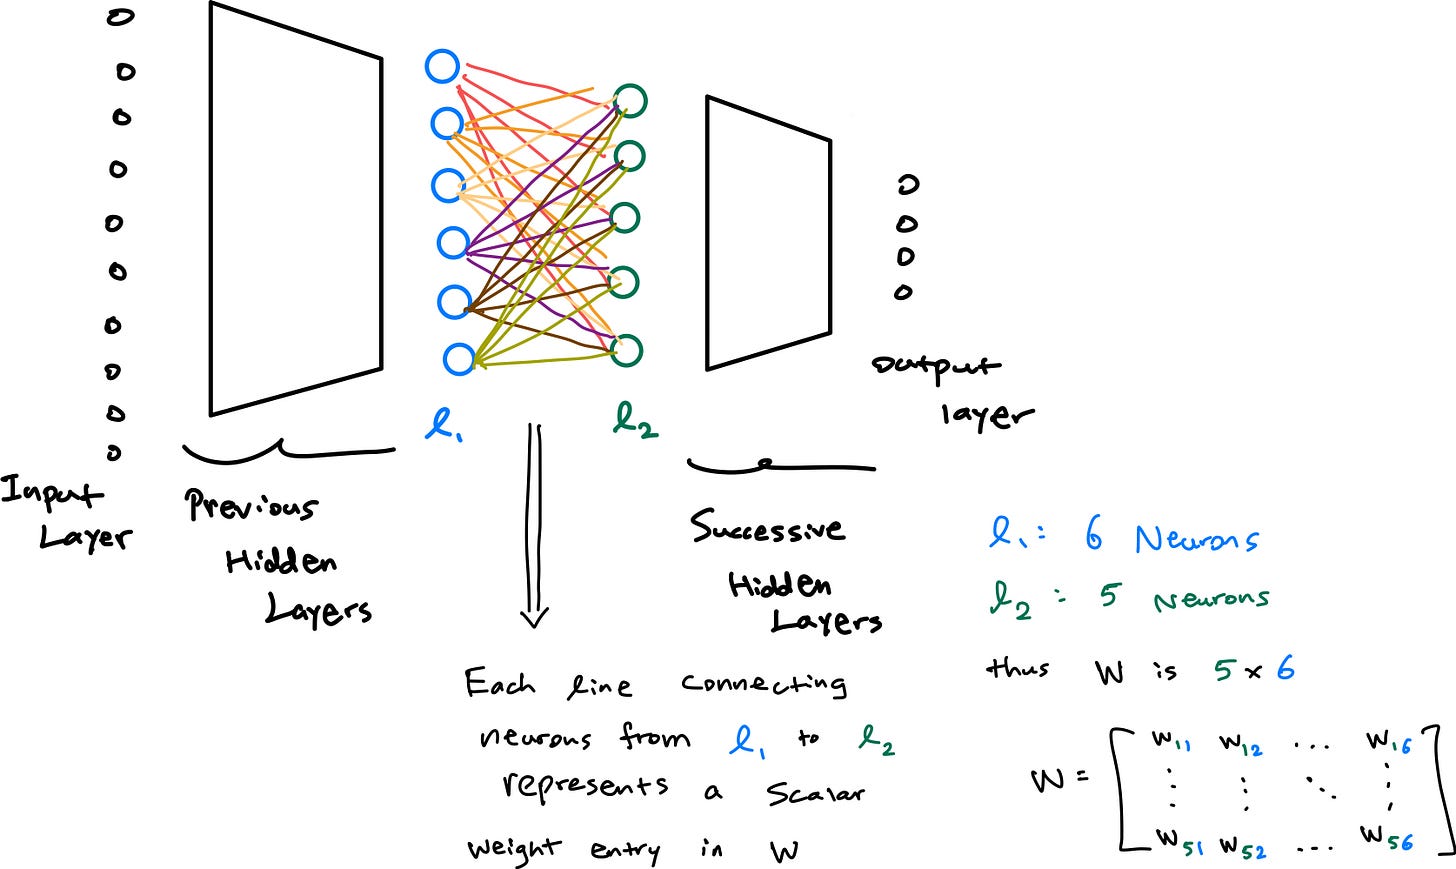 Input
Layer
Previous
Hidden
Layers
l₁
l₂
Successive
Hidden
Layers
Output
layer
Each line connecting
neurons from l₁ to l₂
represents a Scalar
weight entry in W
l₁: 6 Neurons
l₂: 5 Neurons
thus W is 5 x 6
W = [ W₁₁ W₁₂ ... W₁₆
⋮ ⋮ ⋱ ⋮
W₅₁ W₅₂ ... W₅₆ ]